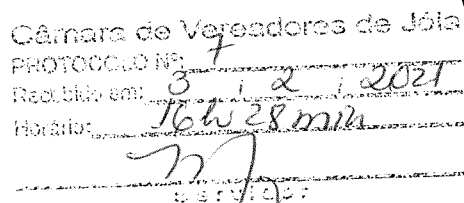 Câmara de Vereadores de Jóia
PROTOCOLO Nº: 7
Recebido em: 3 / 2 / 2021
Horário: 16 h 28 min
Servidor